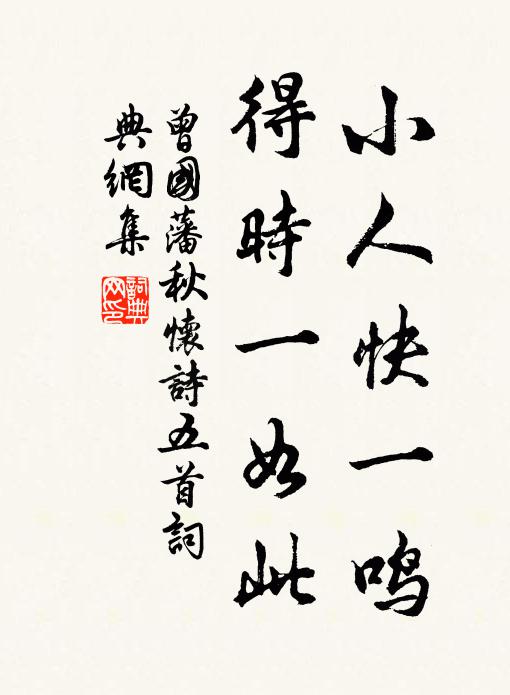 小人快一鸣
得時一如此
曾國藩秋懷詩五首詞
典網集
詞典
网印